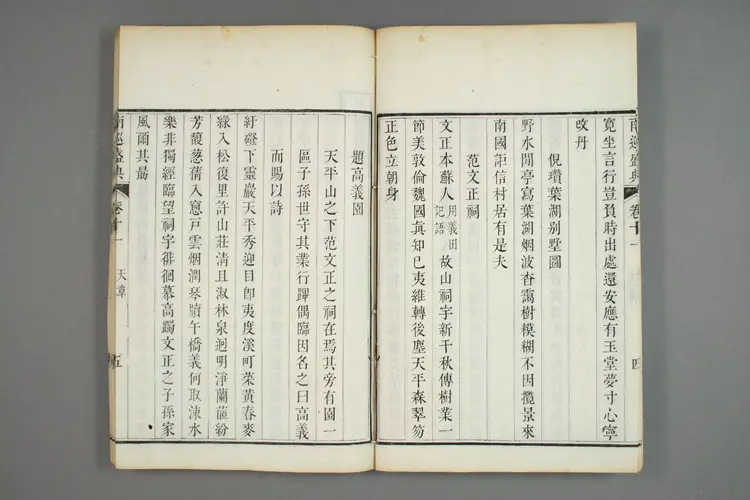 南巡盛典 卷十一 四
寬坐言行豈負時出處還安應有玉堂夢寸心寧
改丹
倪瓚葉湖别墅圖
野水閒亭寫葉湖烟波杳靄樹模糊不因攬景來
南國詎信村居有是夫
范文正祠
文正本蘇人用義田記語故山祠宇新千秋傳樹業一
節美敦倫魏國眞知已夷維轉後塵天平森翠笏
正色立朝身
題高義園
天平山之下范文正之祠在焉其旁有園一
區子孫世守其業行蹕偶臨因名之曰高義
而賜以詩
紆磴下靈巖天平秀迎目卽夷度溪町菜黃春麥
綠入松復里許山莊淸且淑林泉迥明淨蘭茝紛
芳馥葱蒨入窻戸雲烟潤琴牘午橋義何取涑水
樂非獨經臨望祠宇徘徊慕高躅文正之子孫家
風爾其勗
南巡盛典 卷十一 天章 五